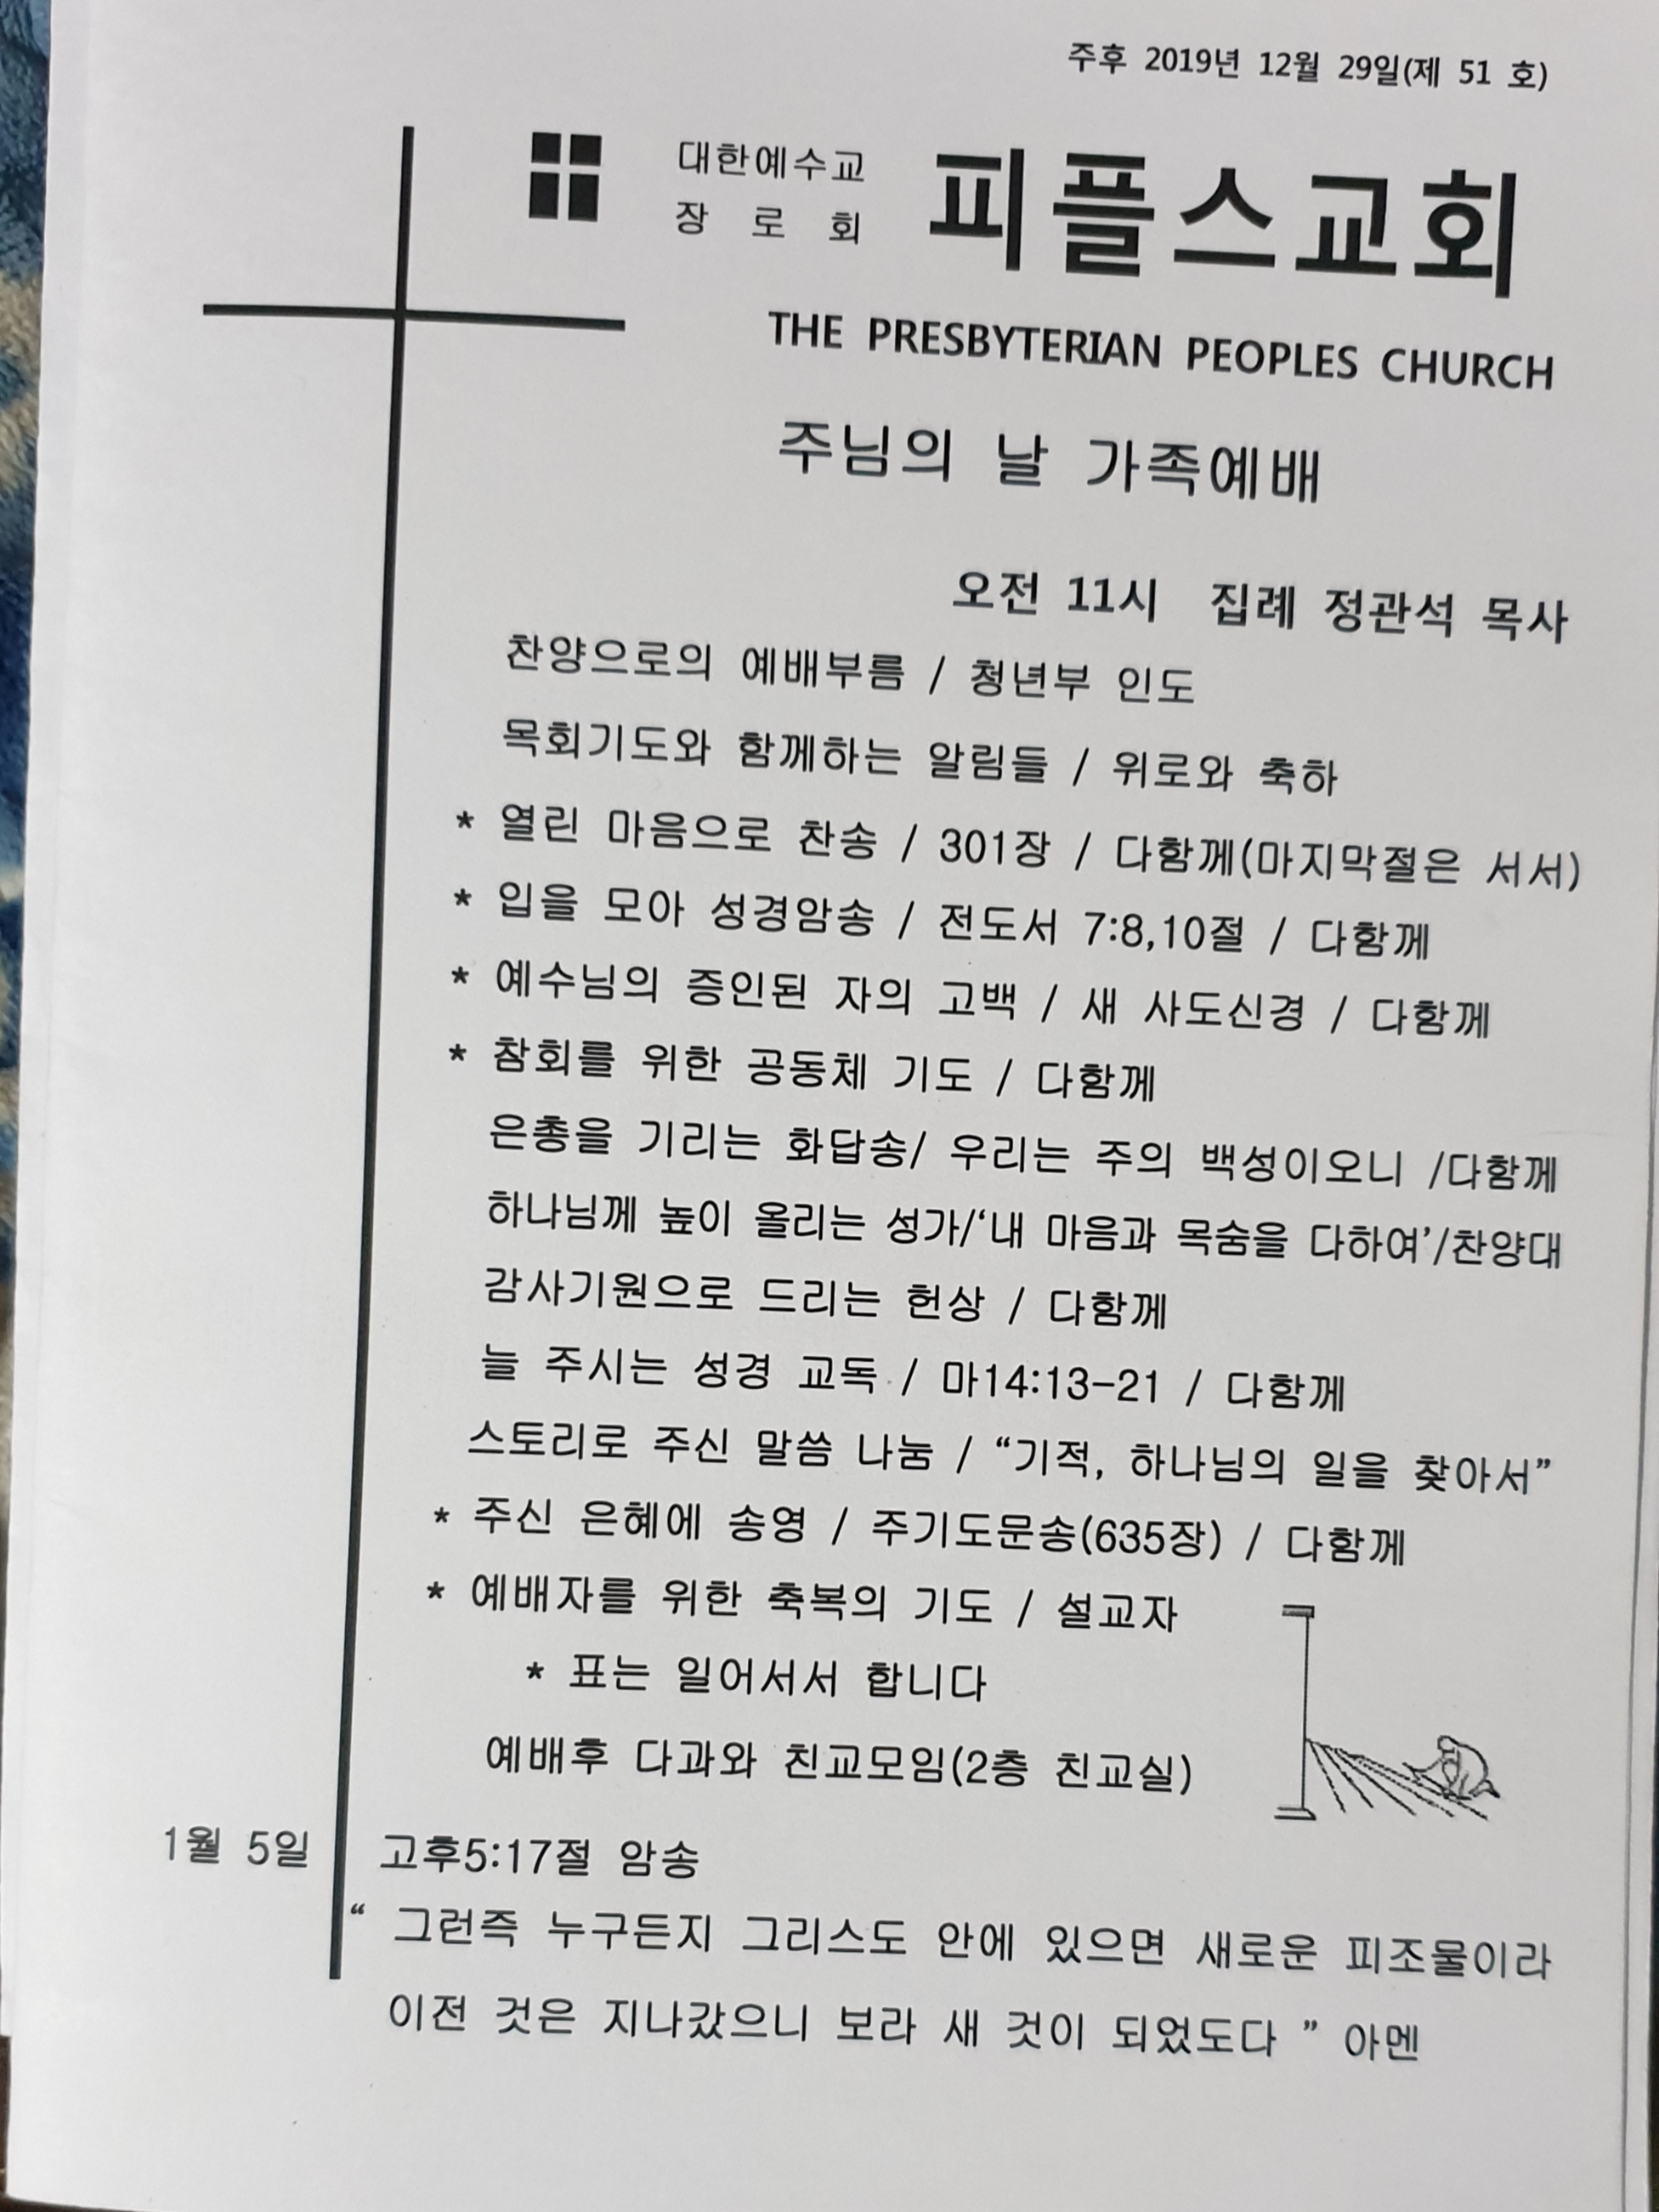 주후 2019년 12월 29일(제 51 호)
대한예수교
장 로 회
피플스교회
THE PRESBYTERIAN PEOPLES CHURCH
주님의 날 가족예배
오전 11시 집례 정관석 목사
찬양으로의 예배부름 / 청년부 인도
목회기도와 함께하는 알림들 / 위로와 축하
* 열린 마음으로 찬송 / 301장 / 다함께(마지막절은 서서)
* 입을 모아 성경암송 / 전도서 7:8,10절 / 다함께
* 예수님의 증인된 자의 고백 / 새 사도신경 / 다함께
* 참회를 위한 공동체 기도 / 다함께
은총을 기리는 화답송/ 우리는 주의 백성이오니 /다함께
하나님께 높이 올리는 성가/‘내 마음과 목숨을 다하여’/찬양대
감사기원으로 드리는 헌상 / 다함께
늘 주시는 성경 교독 / 마14:13-21 / 다함께
스토리로 주신 말씀 나눔 / “기적, 하나님의 일을 찾아서”
* 주신 은혜에 송영 / 주기도문송(635장) / 다함께
* 예배자를 위한 축복의 기도 / 설교자
* 표는 일어서서 합니다
예배후 다과와 친교모임(2층 친교실)
1월 5일 고후5:17절 암송
“ 그런즉 누구든지 그리스도 안에 있으면 새로운 피조물이라
이전 것은 지나갔으니 보라 새 것이 되었도다 ” 아멘